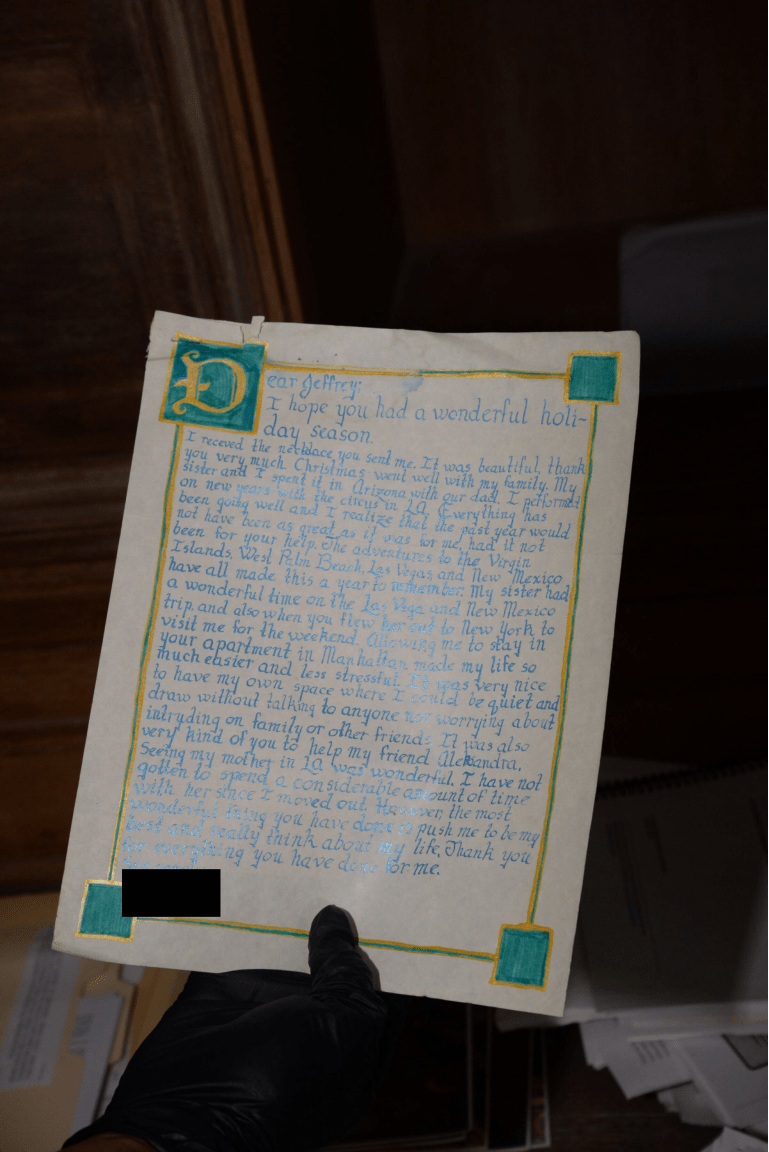 Dear Jeffrey;
I hope you had a wonderful holi-
day season.
I receved the necklace you sent me. It was beautiful, thank
you very much. Christmas went well with my family. My
sister and I spent it in Arizona with our dad. I performed
on new years with the circus in LA. Everything has
been going well and I realize that the past year would
not have been as great as it was for me, had it not
been for your help. The adventures to the Virgin
Islands, West Palm Beach, Las Vegas, and New Mexico
have all made this a year to remember. My sister had
a wonderful time on the Las Vega and New Mexico
trip, and also when you flew her out to New York to
visit me for the weekend. Allowing me to stay in
your apartment in Manhattan made my life so
much easier and less stressful. It was very nice
to have my own space where I could be quiet and
draw without talking to anyone nor worrying about
intryding on family or other friends. It was also
very kind of you to help my friend Aleksandra.
Seeing my mother in LA was wonderful. I have not
gotten to spend a considerable amount of time
with her since I moved out. However, the most
wonderful thing you have done is push me to be my
best and really think about my life. Thank you
for everything you have done for me.